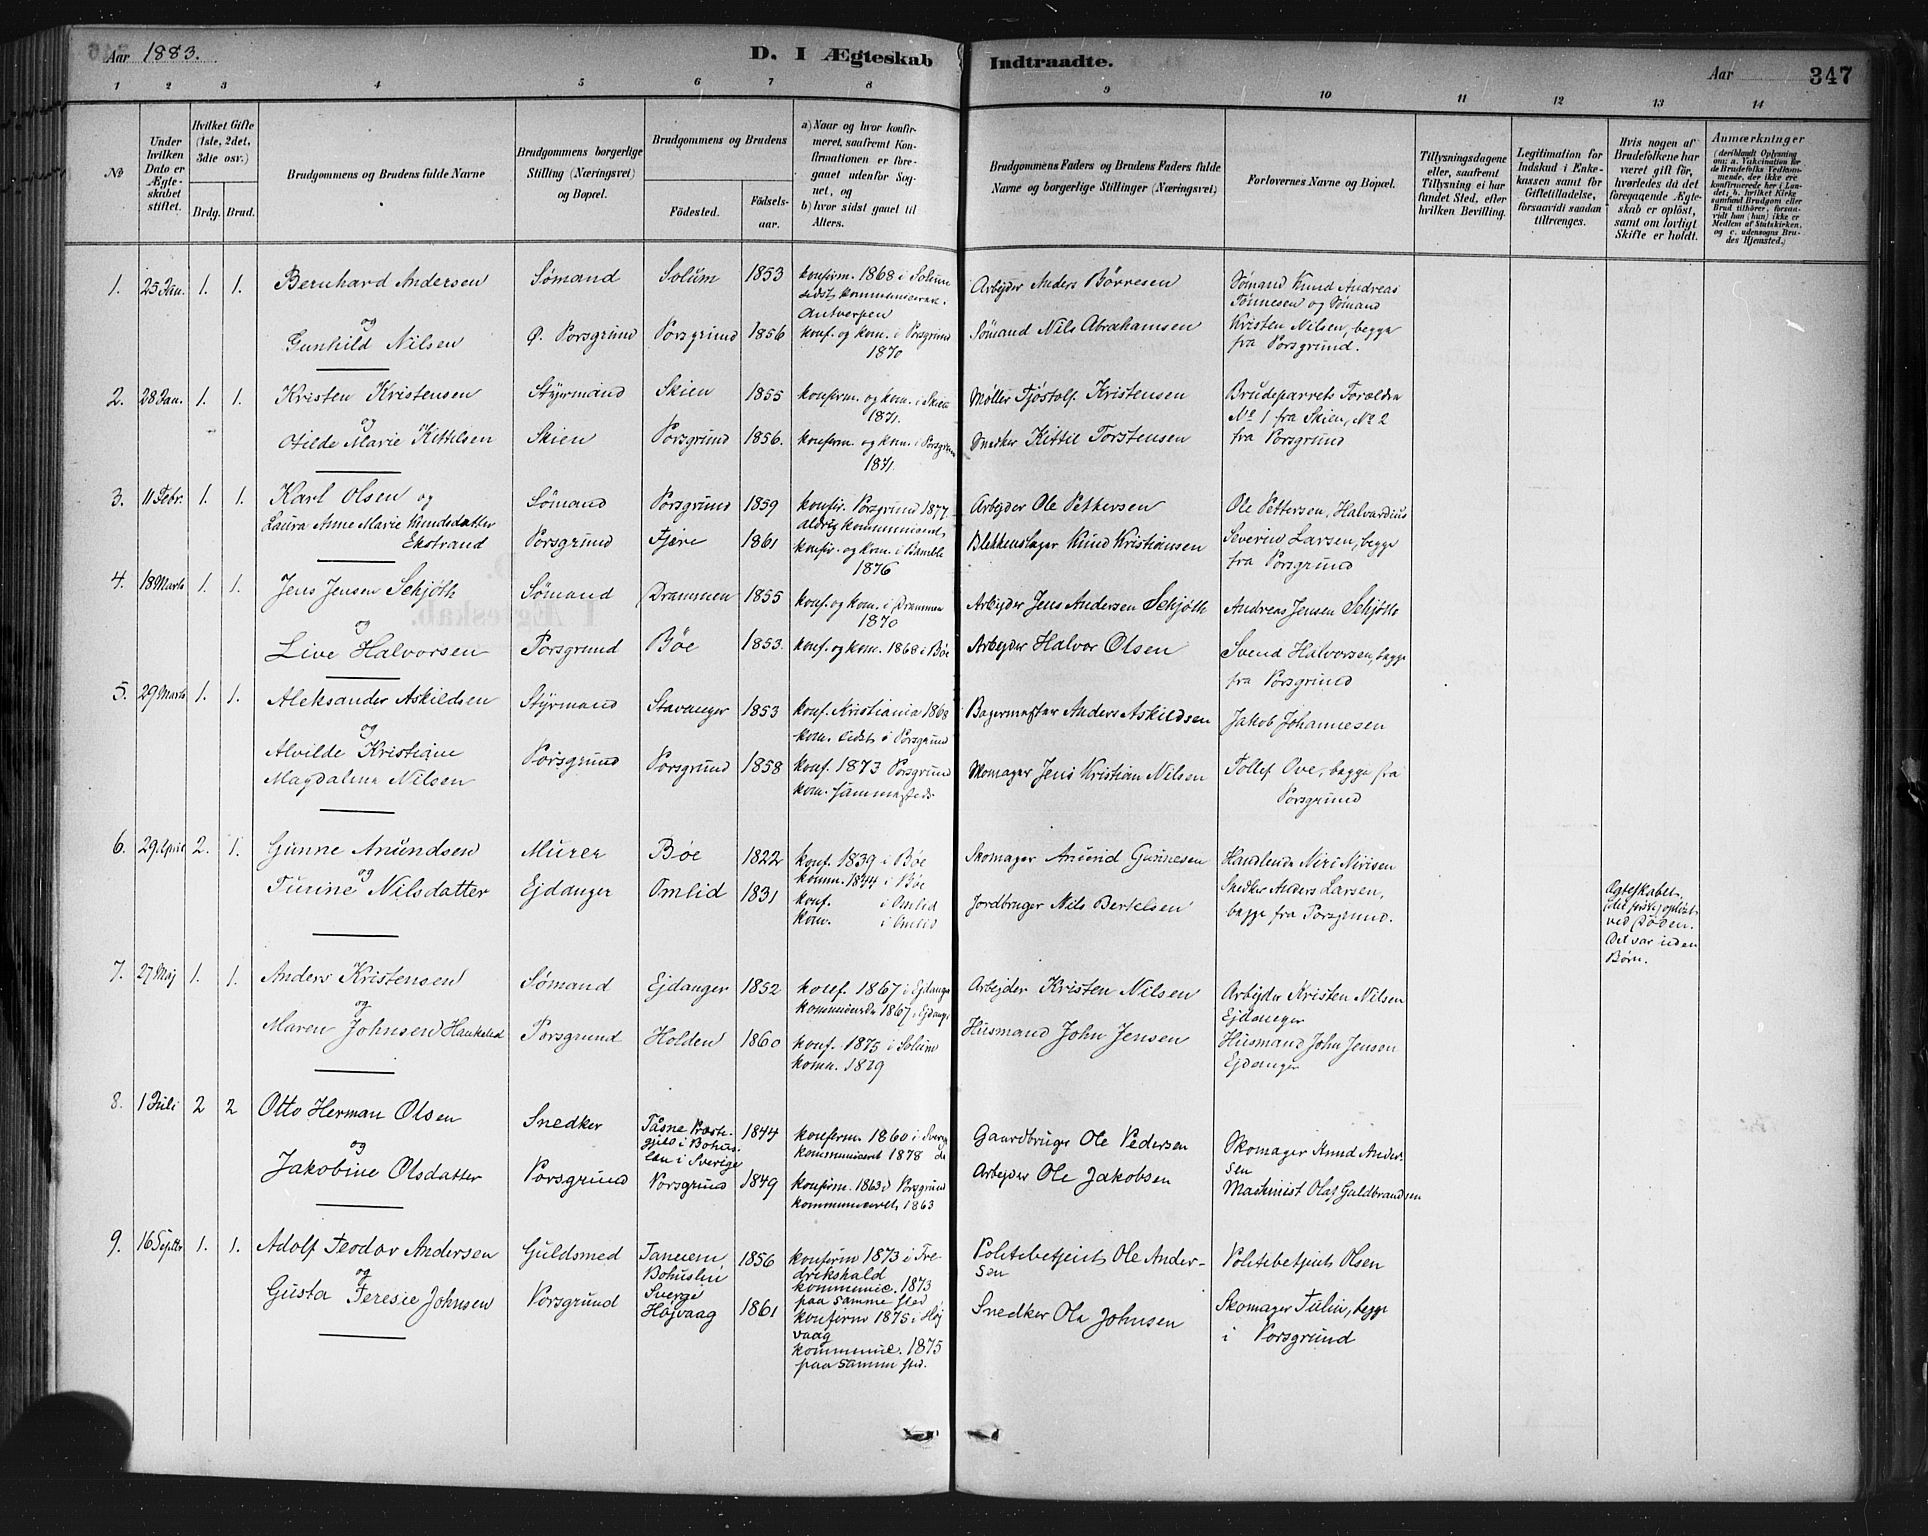 Aar 1883.
D. I Ægteskab Indtraadte.
Aar
347
1 2 3 4 5 6 7 8 9 10 11 12 13 14
No
Under hvilken Dato er Ægteskabet stiftet.
Hvilket Gifte (1ste, 2det, 3die osv.)
Brdg. Brud.
Brudgommens og Brudens fulde Navne
Brudgommens borgerlige Stilling (Næringsvei) og Bopæl.
Brudgommens og Brudens
Fødested.
Fødselsaar.
a) Naar og hvor konfirmeret, saafremt Konfirmationen er foregaaet udenfor Sognet, og b) hvor sidst gaaet til Alters.
Brudgommens Faders og Brudens Faders fulde Navne og borgerlige Stillinger (Næringsvei)
Forlovernes Navne og Bopæl.
Tillysningsdagene eller, saafremt Tillysning ei har fundet Sted, efter hvilken Bevilling.
Legitimation for Indskud i Enkekassen samt for Giftetilladelse, forsaavidt saadan tiltrænges.
Hvis nogen af Brudefolkene har været gift før, hvorledes da det foregaaende Ægteskab er opløst, samt om lovligt Skifte er holdt.
Anmærkninger (deriblandt Oplysning om: a. Vakcination for de Brudefolks Vedkommende, der ikke ere konfirmerede her i Landet; b. hvilket Kirkesamfund Brudgom eller Brud tilhører, forsaavidt han (hun) ikke er Medlem af Statskirken, og c. udensogns Brudes Hjemsted.)
1. 25 Jan. 1. 1. Bernhard Andersen Sømand Solum 1853 konfirm. 1868 i Solum sidst kommuniceret Antverpen Arbejder Anders Børresen Sømand Knud Andreas Tønnesen og Sømand
og Gunhild Nilsen Ø. Porsgrund Porsgrund 1856 konf. og kom. i Porsgrund 1870 Sømand Nils Abrahamsen Kristen Nilsen, begge fra Porsgrund.
2. 28 Jan. 1. 1. Kristen Kristensen Styrmand Skien 1855 konfirm. og kom. i Skien 1871. Møller Tjøstolf Kristensen Brudeparrets Forældre No 1 fra Skien, No 2
og Otilde Marie Kittilsen Skien Porsgrund 1856. konfirm. og kom. i Porsgrun 1871. Snedker Kittil Torstensen fra Porsgrund
3. 11 Febr. 1. 1. Karl Olsen og Sømand Porsgrund 1859 konfir. Porsgrund 1877 aldrig kommuniceret, Arbejder Ole Pettersen Ole Pettersen, Halvardius
Laura Anne Marie Knudsdatter Ekstrand Porsgrund Fjere 1861 konfir. og kom. i Bamble 1876 Blikkenslager Knud Kristiansen Severin Larsen, begge fra Porsgrund
4. 18 Marts 1. 1. Jens Jensen Schjøth Sømand Drammen 1855 konf. og kom. i Drammen 1870 Arbejder Jens Andersen Schjøth Andreas Jensen Schjøth
og Live Halvorsen Porsgrund Bøe 1853. konf. og kom. 1868 i Bøe Arbejder Halvor Olsen Svend Halvorsen, begge fra Porsgrund
5. 29 Marts 1. 1. Aleksander Askildsen Styrmand Stavanger 1853 konf. Kristiania 1868 kom. sidst i Porsgrund Bagermester Anders Askildsen Jakob Johannesen
og Alvilde Kristiane Magdalena Nilsen Porsgrund Porsgrund 1858 konf. 1873 Porsgrund kom. sammesteds. Skomager Jens Kristian Nilsen Tollef Ove, begge fra Porsgrund
6. 29. April 2. 1. Gunne Anundsen Murer Bøe 1822 konf. 1839 i Bøe komm. 1844 i Bøe Skomager Anund Gunnesen Handlende Niri Nirisen
og Turine Nilsdatter Ejdanger Omlid 1831 konf. i Omlid kom. i Omlid Jordbruger Nils Bertelsen Snedker Anders Larsen, begge fra Porsgrund. Ægteskabet (det første) opløst ved Døden. Det var uden Børn.
7. 27 Maj 1. 1. Anders Kristensen Sømand Ejdanger 1852 konf. 1867 i Ejdanger 1867 i Ejdang. Arbejder Kristen Nilsen Arbejder Kristen Nilsen Ejdanger
og Maren Johnsen Porsgrund Holden 1860 konf. 1875 i Solum komm. 1879 Husmand John Jensen Husmand John Jensen Ejdanger
8. 1 Juli 2 2 Otto Herman Olsen Snedker Præstegjeld i Bohuslen i Sverige 1844 konfirm. 1860 i Sverig kommuniceret 1878 do Gaardbruger Ole Pedersen Skomager Knud Andersen
og Jakobine Olsdatter Porsgrund Porsgrund 1849 konfirm. 1863 i Porsgrund kommuniceret 1863 Arbejder Ole Jakobsen Maskinist Olaf Guldbrandsen
9. 16 Septbr 1. 1. Adolf Teodor Andersen Guldsmed Tanum Bohuslin Sverge 1856 konfirm 1873 i Fredrikshald kommunic. 1873 paa samme sted Politibetjent Ole Andersen Politibetjent Olsen
og Gusta Teresie Johnsen Porsgrund Højvaag 1861 konfirm 1875 i Højvaag kommunic. 1875 paa samme sted. Snedker Ole Johnsen Skomager Tulin, begge i Porsgrund